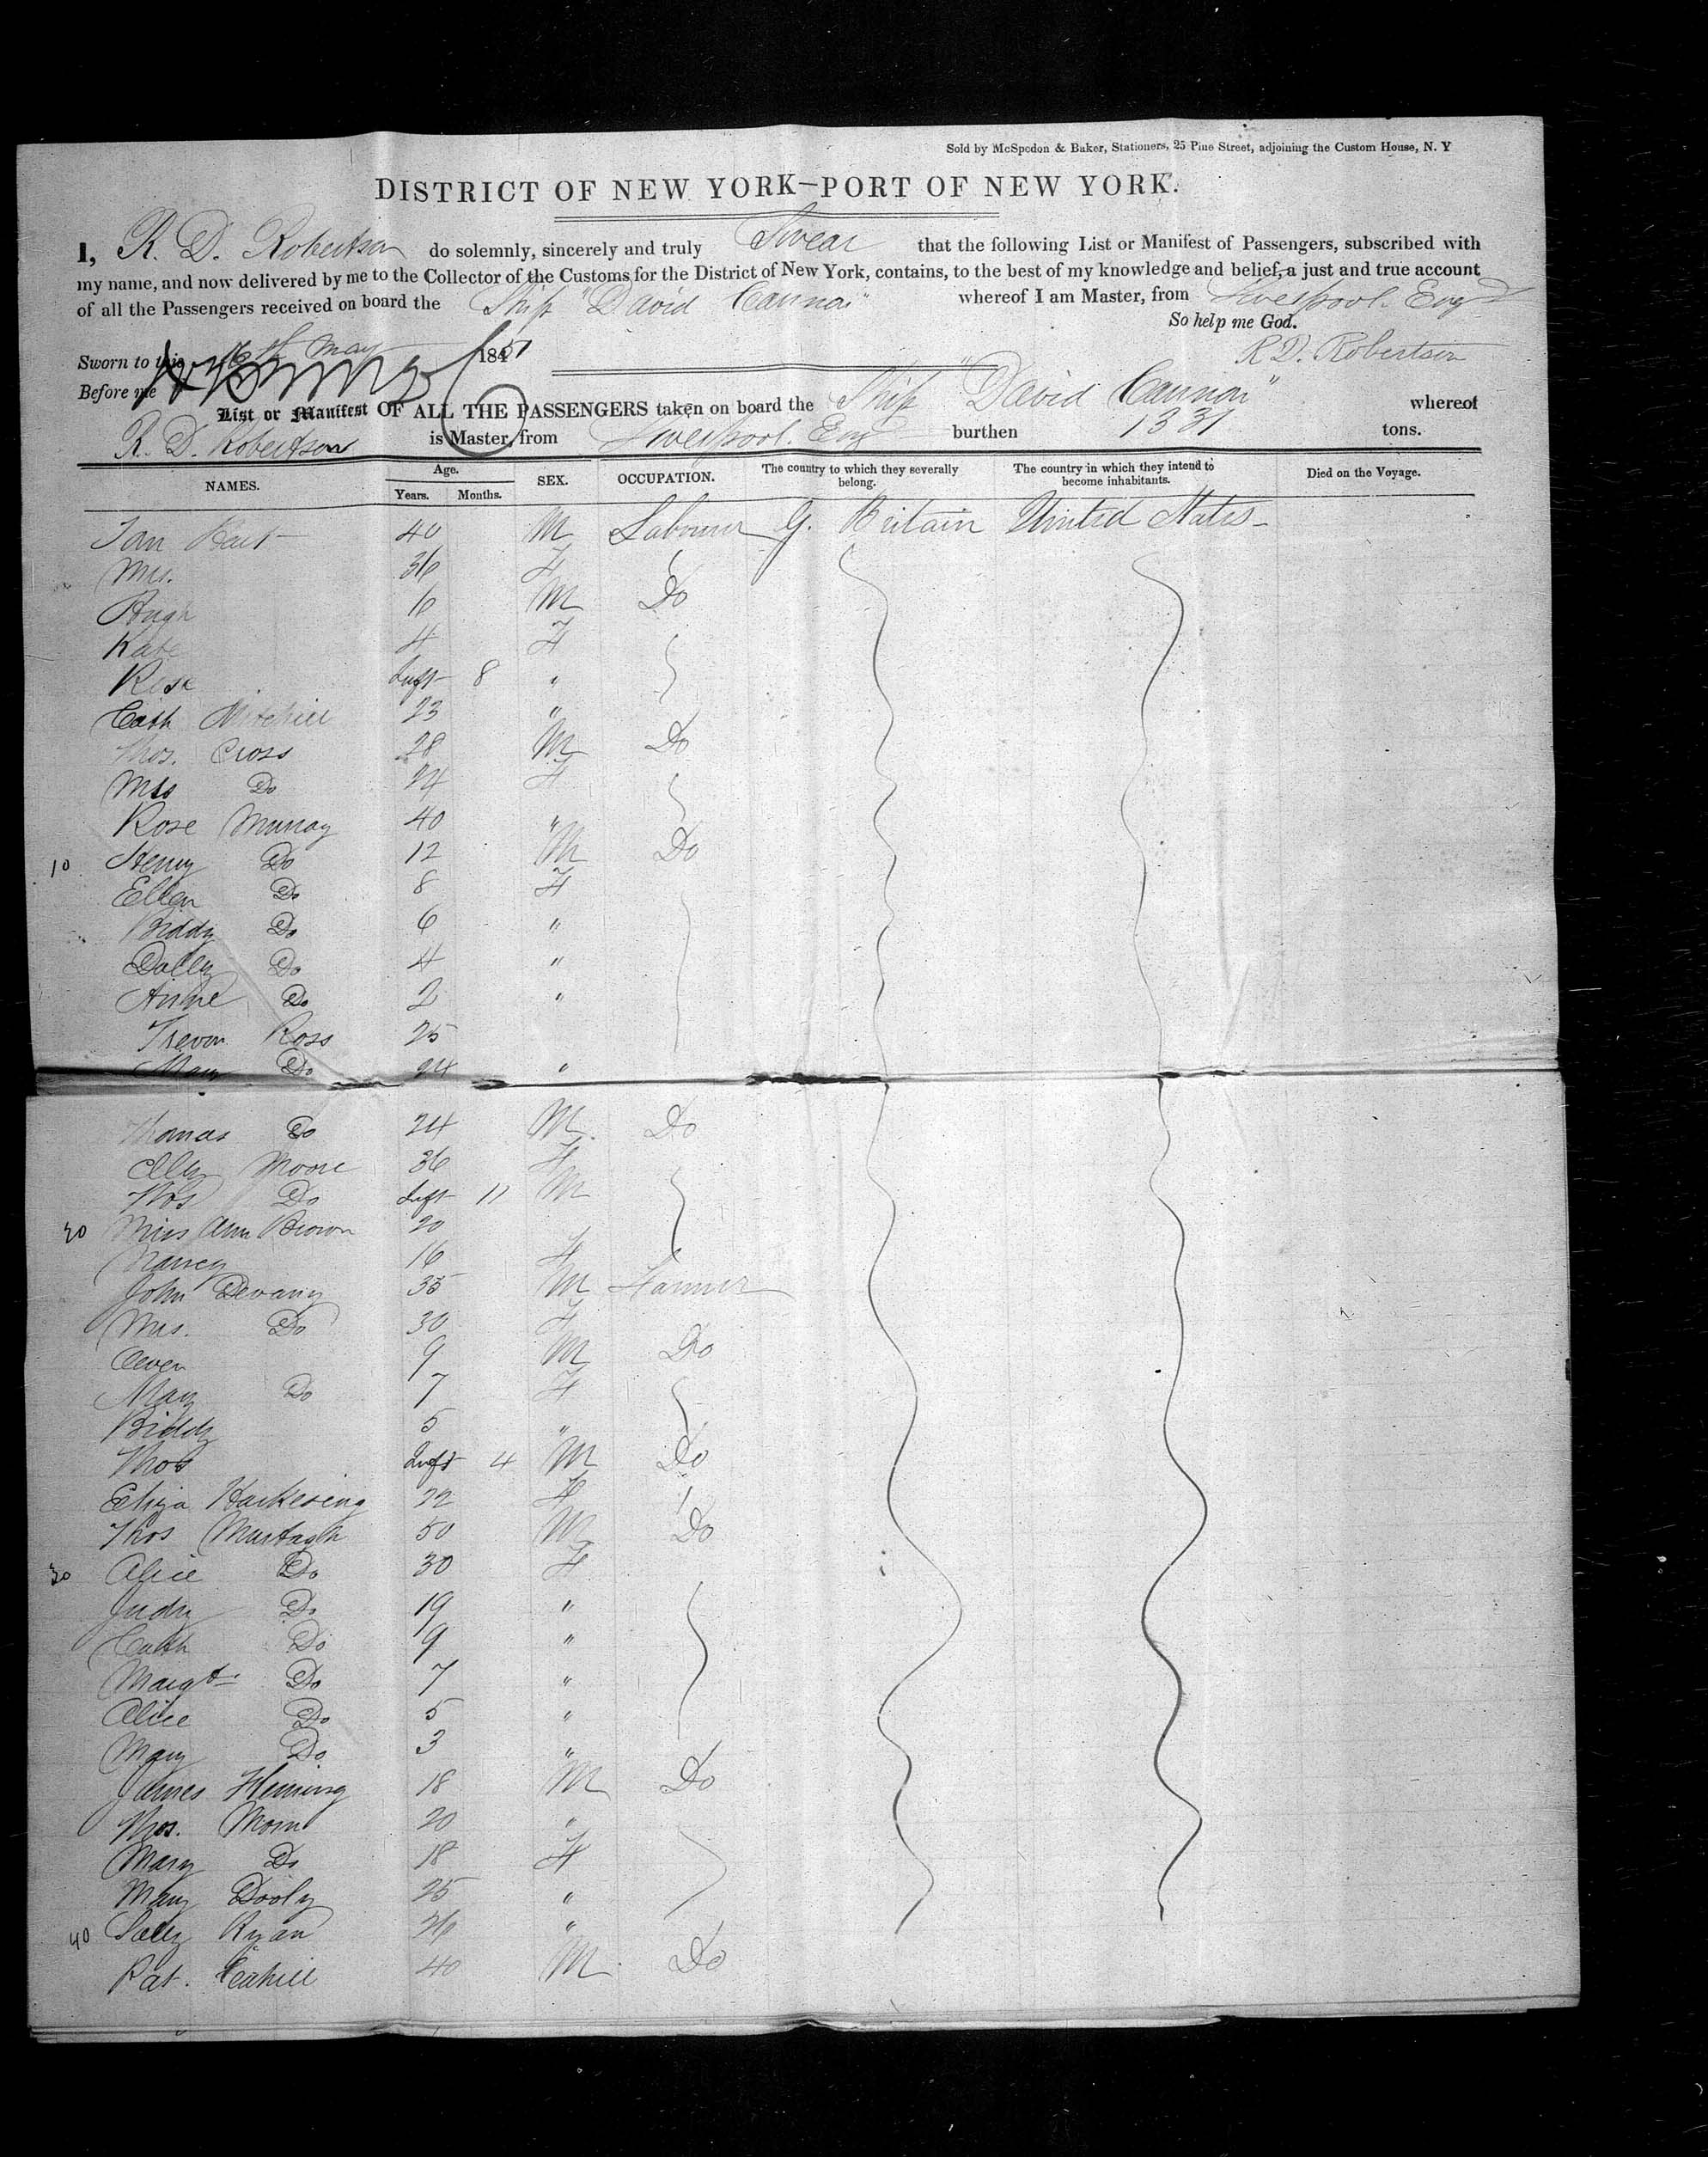 Sold by McSpedon & Baker, Stationers, 25 Pine Street, adjoining the Custom House, N. Y
DISTRICT OF NEW YORK—PORT OF NEW YORK.
I, R. D. Robertson do solemnly, sincerely and truly Swear that the following List or Manifest of Passengers, subscribed with
my name, and now delivered by me to the Collector of the Customs for the District of New York, contains, to the best of my knowledge and belief, a just and true account
of all the Passengers received on board the Ship "David Cannon" whereof I am Master, from Liverpool. Eng
So help me God.
Sworn to this May 1851 R. D. Robertson
Before me
List or Manifest OF ALL THE PASSENGERS taken on board the Ship "David Cannon" whereof
R. D. Robertson is Master, from Liverpool. Eng burthen 1331 tons.
NAMES. Age. Years. Months. SEX. OCCUPATION. The country to which they severally belong. The country in which they intend to become inhabitants. Died on the Voyage.
40 M Labourer G. Britain United States
Mrs. 36 F
Hugh 6 M Do
Kate 4 F
Rose Inft 8 "
Cath Mitchell 23 "
Thos. Cross 28 M Do
Mrs Do 24 F
Rose Murray 40 "
10 Henry Do 12 M Do
Ellen Do 8 F
Biddy Do 6 "
Dolly Do 4 "
Anne Do 2 "
Trevor Ross 25
Mary Do 24 "
Thomas Do 24 M Do
Elly Moore 36 F
Thos Do Inft 11 M
20 Miss Ann Brown 20
Nancy 16 F
John Devany 35 M Farmer
Mrs. Do 30 F
Owen 9 M Do
Mary Do 7 F
Biddy 5 "
Thos Inft 4 M Do
Eliza 22 F
Thos Murtagh 50 M Do
30 Alice Do 30 F
Judy Do 19 "
Cath Do 9 "
Margt Do 7 "
Alice Do 5 "
Mary Do 3 "
James Fleming 18 M Do
Thos. 20 "
Mary Do 18 F
Mary Dooly 25 "
40 Sally Ryan 26 "
Pat. Cahill 40 M Do